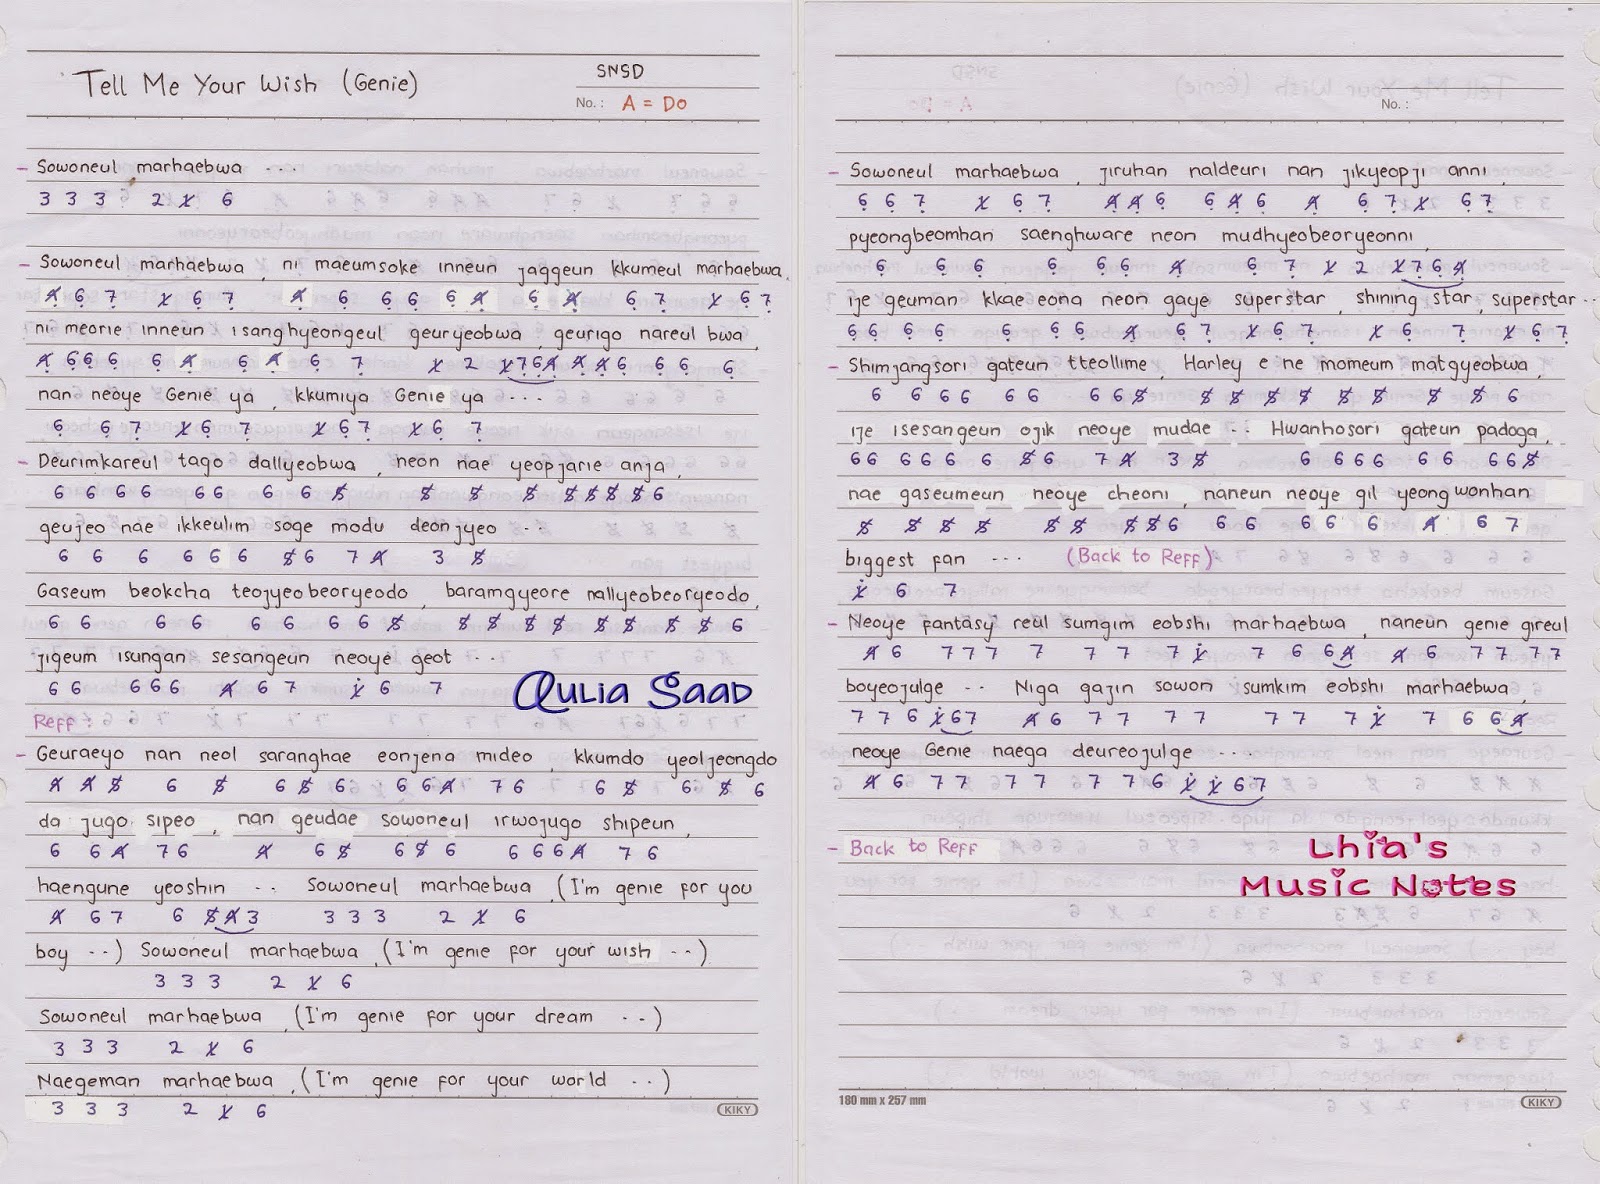 Tell Me Your Wish (Genie)
SNSD
No. : A = Do
- Sowoneul marhaebwa ...
3 3 3 2 1̸ 6
- Sowoneul marhaebwa, ni maeumsoke inneun jaggeun kkumeul marhaebwa,
4̸ 6 7 1̸ 6 7 4̸ 6 6 6 6 4̸ 6 4̸ 6 7 1̸ 6 7
ni meorie inneun isanghyeongeul geuryeobwa, geurigo nareul bwa,
4̸ 6 6 6 6 4̸ 6 4̸ 6 7 1̸ 2 1̸ 7 6 4̸ 4̸ 4̸ 6 6 6 6
nan neoye Genie ya, kkumiya Genie ya ...
6 6 7 1̸ 6 7 1̸ 6 7 1̸ 6 7
- Deurimkareul tago dallyeobwa, neon nae yeopjarie anja,
6 6 6 6 6 6 6 6 5̸ 5̸ 5̸ 5̸ 5̸ 5̸ 5̸ 5̸ 6
geujeo nae ikkeulim soge modu deonjyeo ..
6 6 6 6 6 6 5̸ 6 7 4̸ 3 5̸
Gaseum beokcha teojyeobeoryeodo, baramgyeore nallyeobeoryeodo,
6 6 6 6 6 6 6 6 5̸ 5̸ 5̸ 5̸ 5̸ 5̸ 5̸ 5̸ 5̸ 6
jigeum isungan sesangeun neoye geot ..
6 6 6 6 6 4̸ 6 7 1̸ 6 7
Aulia Saad
Reff :
- Geuraeyo nan neol saranghae eonjena mideo, kkumdo yeoljeongdo
4̸ 4̸ 5̸ 6 5̸ 6 5̸ 6 6 6 4̸ 7 6 6 5̸ 6 5̸ 6
da jugo sipeo, nan geudae sowoneul irwojugo shipeun,
6 6 4̸ 7 6 4̸ 6 5̸ 6 5̸ 6 6 6 6 4̸ 7 6
haengune yeoshin .. Sowoneul marhaebwa (I'm genie for you
4̸ 6 7 6 5̸ 4̸ 3 3 3 3 2 1̸ 6
boy ..) Sowoneul marhaebwa (I'm genie for your wish ..)
3 3 3 2 1̸ 6
Sowoneul marhaebwa (I'm genie for your dream ..)
3 3 3 2 1̸ 6
Naegeman marhaebwa (I'm genie for your world ..)
3 3 3 2 1̸ 6
KIKY
No. :
- Sowoneul marhaebwa, jiruhan naldeuri nan jikyeopji anni,
6 6 7 1̸ 6 7 4̸ 4̸ 6 6 4̸ 6 4̸ 6 7 1̸ 6 7
pyeongbeomhan saenghware neon mudhyeobeoryeonni,
6 6 6 6 6 6 4̸ 6 7 1̸ 2 1̸ 7 6 4̸
ije geuman kkae eona neon gaye superstar, shining star, superstar ..
6 6 6 6 6 6 6 4̸ 6 7 1̸ 6 7 1̸ 6 7 1̸ 6 7
- Shimjangsori gateun tteollime, Harley e ne momeum matgyeobwa,
6 6 6 6 6 6 6 6 5̸ 5̸ 5̸ 5̸ 5̸ 5̸ 5̸ 5̸ 5̸ 6
ije isesangeun ojik neoye mudae .. Hwanhosori gateun padoga,
6 6 6 6 6 6 5̸ 6 7 4̸ 3 5̸ 6 6 6 6 6 6 6 6 5̸
nae gaseumeun neoye cheoni, naneun neoye gil yeongwonhan
5̸ 5̸ 5̸ 5̸ 5̸ 5̸ 5̸ 5̸ 6 6 6 6 6 6 4̸ 6 7
biggest fan ... (Back to Reff)
1̸ 6 7
- Neoye fantasy reul sumgim eobshi marhaebwa, naneun genie gireul
4̸ 6 7 7 7 7 7 7 7 1̸ 7 6 6 4̸ 4̸ 6 7 7 7 7
boyeojulge .. Niga gajin sowon sumkim eobshi marhaebwa,
7 7 6 1̸ 6 7 4̸ 6 7 7 7 7 7 7 7 1̸ 7 6 6 4̸
neoye Genie naega deureojulge ....
4̸ 6 7 7 7 7 7 7 7 6 1̸ 1̸ 6 7
- Back to Reff
Lhia's
Music Notes
180 mm x 257 mm
KIKY